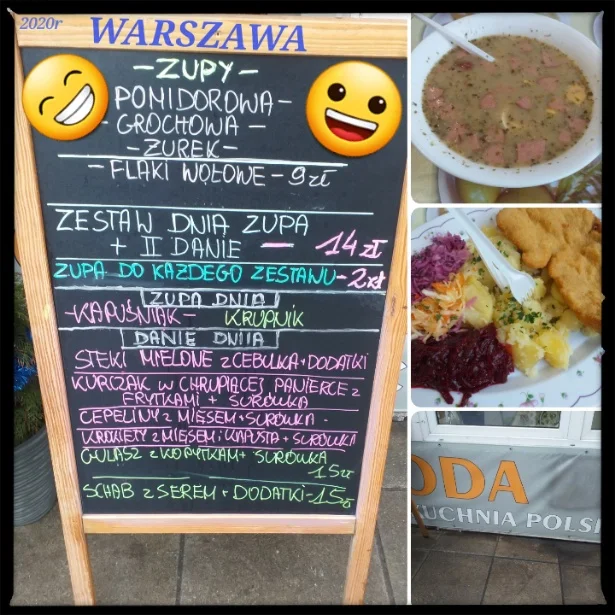 2020r
WARSZAWA
-ZUPY-
POMIDOROWA-
-GROCHOWA-
-ŻUREK-
-FLAKI WOŁOWE-9zł
ZESTAW DNIA ZUPA
+ II DANIE - 14zł
ZUPA DO KAŻDEGO ZESTAWU-2zł
ZUPA DNIA
-KAPUŚNIAK- KRUPNIK
DANIE DNIA
STEKI MIELONE z CEBULKĄ+DODATKI
KURCZAK W CHRUPIĄCEJ PANIERCE z
FRYTKAMI + SURÓWKA
CEPELINY z MIĘSEM+SURÓWKA-
KROKIETY z MIĘSEM i KAPUSTĄ + SURÓWKA
GULASZ z KOPYTKAMI+ SURÓWKA
15zł
SCHAB z SEREM + DODATKI-15zł
ODA
KUCHNIA POLS